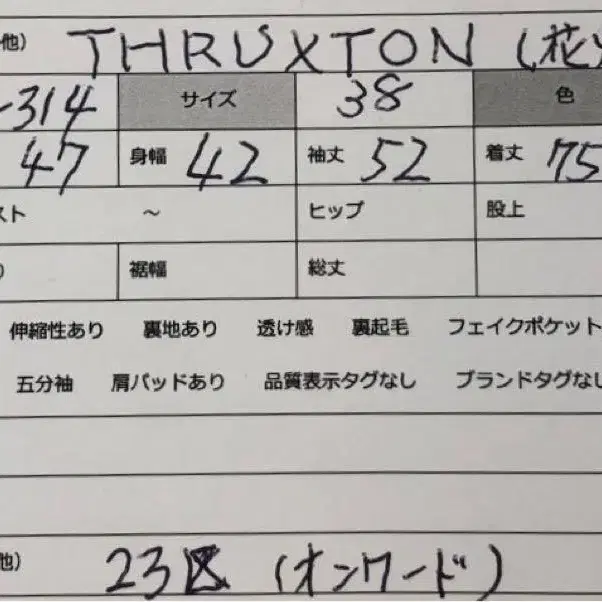 他) THRUXTON (花
-314 サイズ 38 色
47 身幅 42 袖丈 52 着丈 75
スト ～ ヒップ 股上
裾幅 総丈
伸縮性あり 裏地あり 透け感 裏起毛 フェイクポケット
五分袖 肩パッドあり 品質表示タグなし ブランドタグなし
他) 23区 (オンワード)